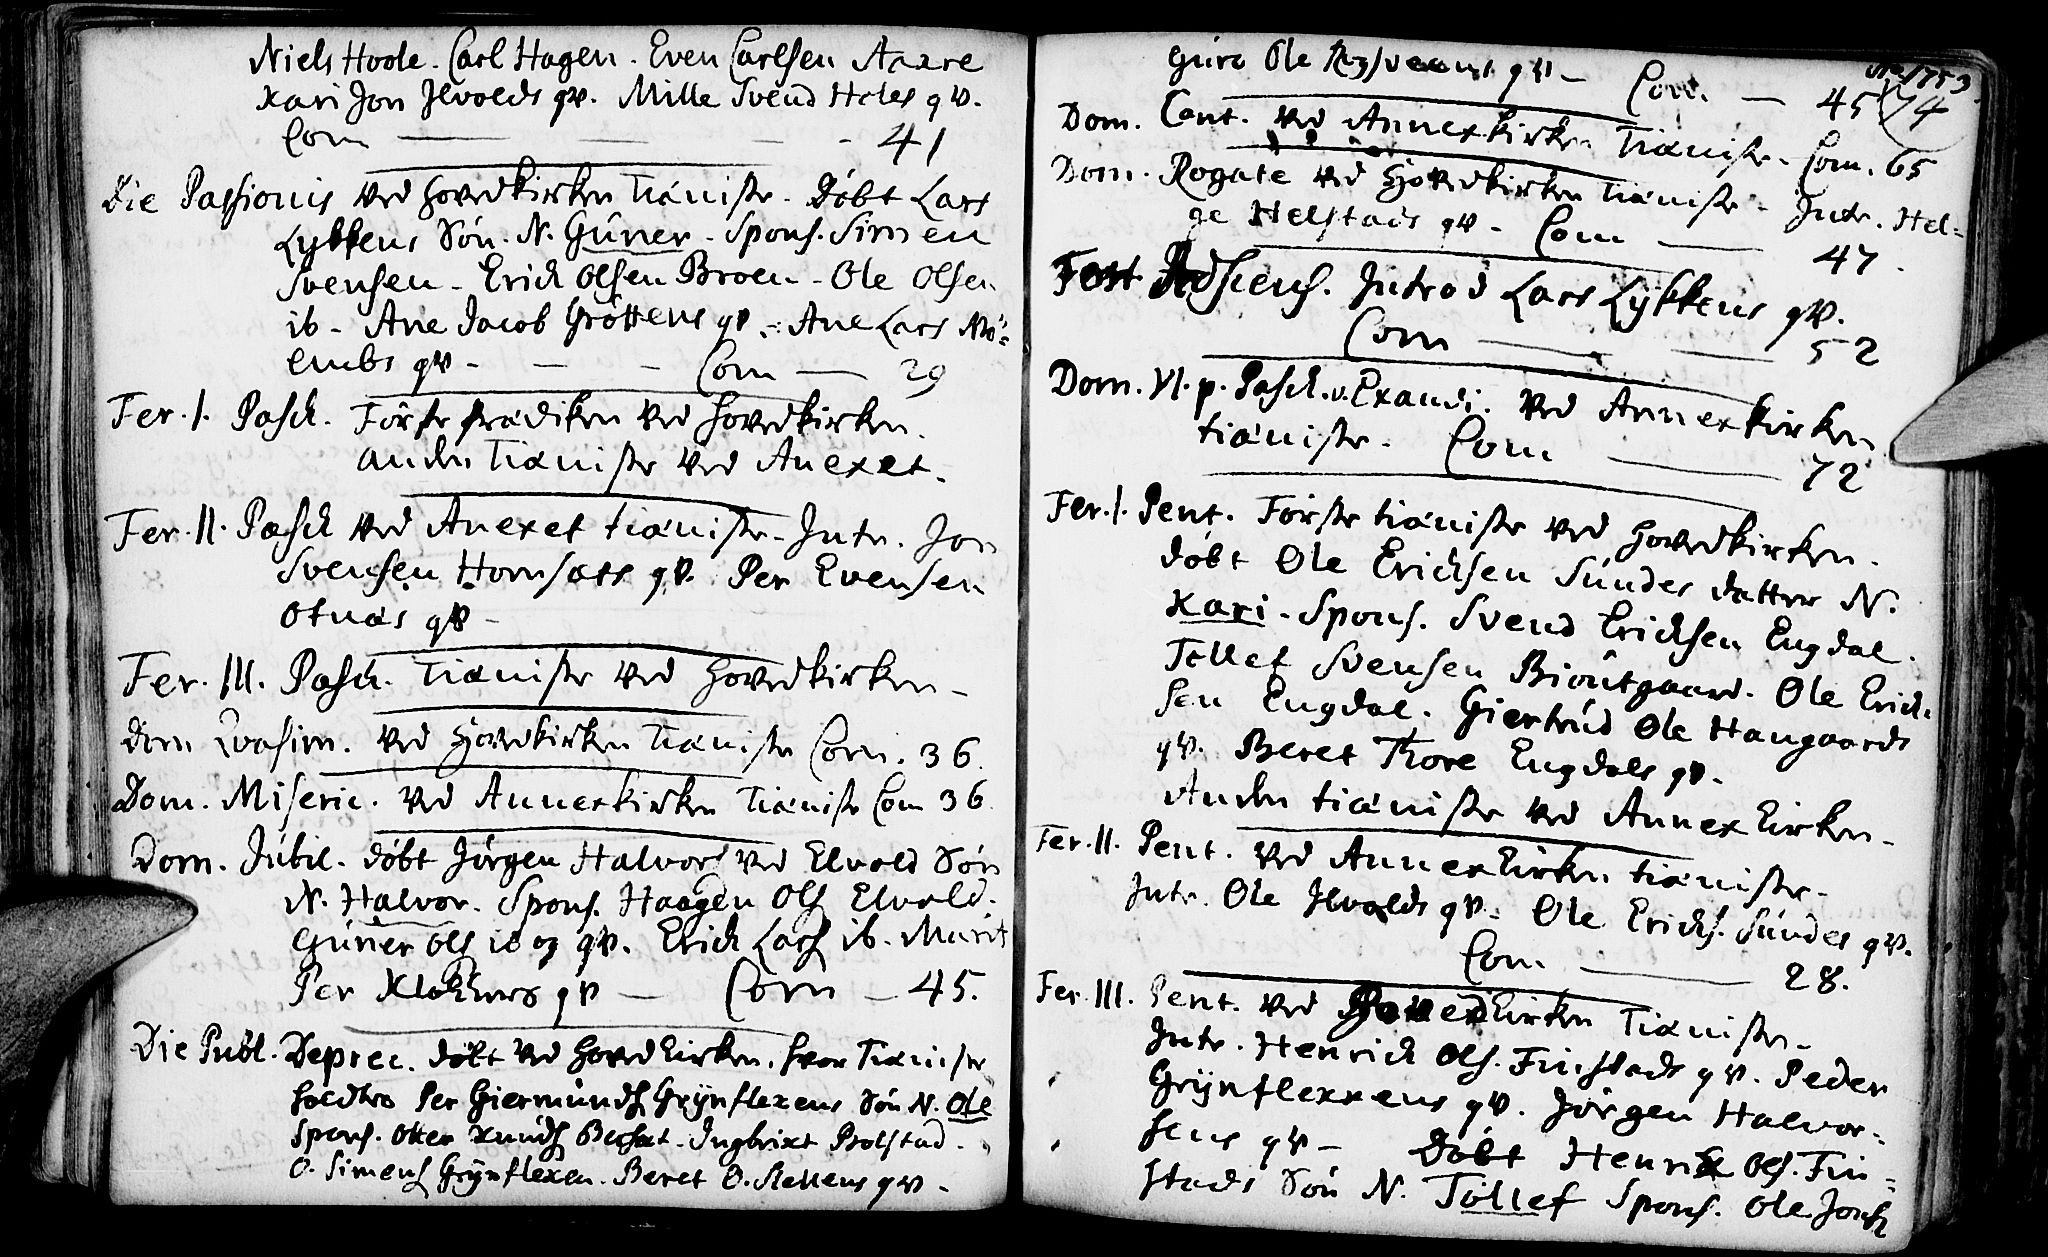 Niels Hoole. Carl Hagen. Even Carlsen Aaxre
Kari Jon Jlvolds qv. Mille Svend Holes qv.
Com — 41
Die Passionis ved Hovedkirken Tiäniste. Döbt Lars
Lykkens Sön. N. Gúner. Spons. Simen
Svensen. Erich Olsen Broen. Ole Olsen
ib. Ane Jacob Gröttens qv. Ane Lars
qv. Com — 29
Fer. I. Pasch. Förste prædiken ved Hovedkirken.
anden Tiäniste ved Anexet.
Fer. II. Pasch ved Anexet tiäniste. Intr. Jon
Svensen Hornsæts qv. Per Evensen
Otnæs qv.
Fer. III. Pasch. Tiäniste ved Hovedkirken.
Dom Qvasim. ved Hovedkirken Tiäniste Com. 36.
Dom. Miseric. ved Annexkirken Tiäniste Com 36.
Dom. Júbil. döbt Jörgen Halvors ved Elvold Sön
N. Halvor. Spons. Haagen Ols Elvold.
Gúner Ols ib og qv. Erich Lars ib. Marit
Per Klokkers qv — Com — 45.
Die Públ. Deprec. döbt ved Hovedkirken, hvor Tiäniste
holdtes Per Giermúnds Grÿnflexens Sön N. Ole
Spons. Otter Knúds Ingbrixt Bolstad.
O. Simens Grÿnflexen. Beret O. Slettens qv.
Anno 1753.
Gúro Ole qv — Com. — 45 74
Dom. Cant. ved Annexkirken Tiäniste. Com. 65
Dom. Rogate ved Hovedkirken Tiäniste. Intr. Hel-
ge Helstads qv. Com — 47.
Fest Adscens. Introd Lars Lÿkkens qv.
Com — 52
Dom. VI. p. Pasch. v. Exaudi. ved Annexkirken
tiäniste. Com — 72
Fer. I. Pent. Förste tiäniste ved Hovedkirken.
döbt Ole Erichsen Súndes datter N.
Kari. Spons. Svend Erichsen Engdal.
Töllef Svensen Biörútgaard. Ole Erich-
sen Engdal. Giertrúd Ole Haugaards
qv. Beret Thore Engdals qv.
Anden tiäniste ved Annexkirken.
Fer. II. Pent. ved Annexkirken tiäniste.
Intr. Ole Jlvolds qv. Ole Erichs. Súndes qv.
Com. — 28.
Fer. III. Pent. ved Hovedkirken Tiäniste.
Intr. Henrich Ols. Finstads qv. Peder
Grÿnflexxens qv. Jörgen Halvor-
sens qv — Döbt Henrich Ols. Fin-
stads Sön N. Töllef Spons. Ole Jons